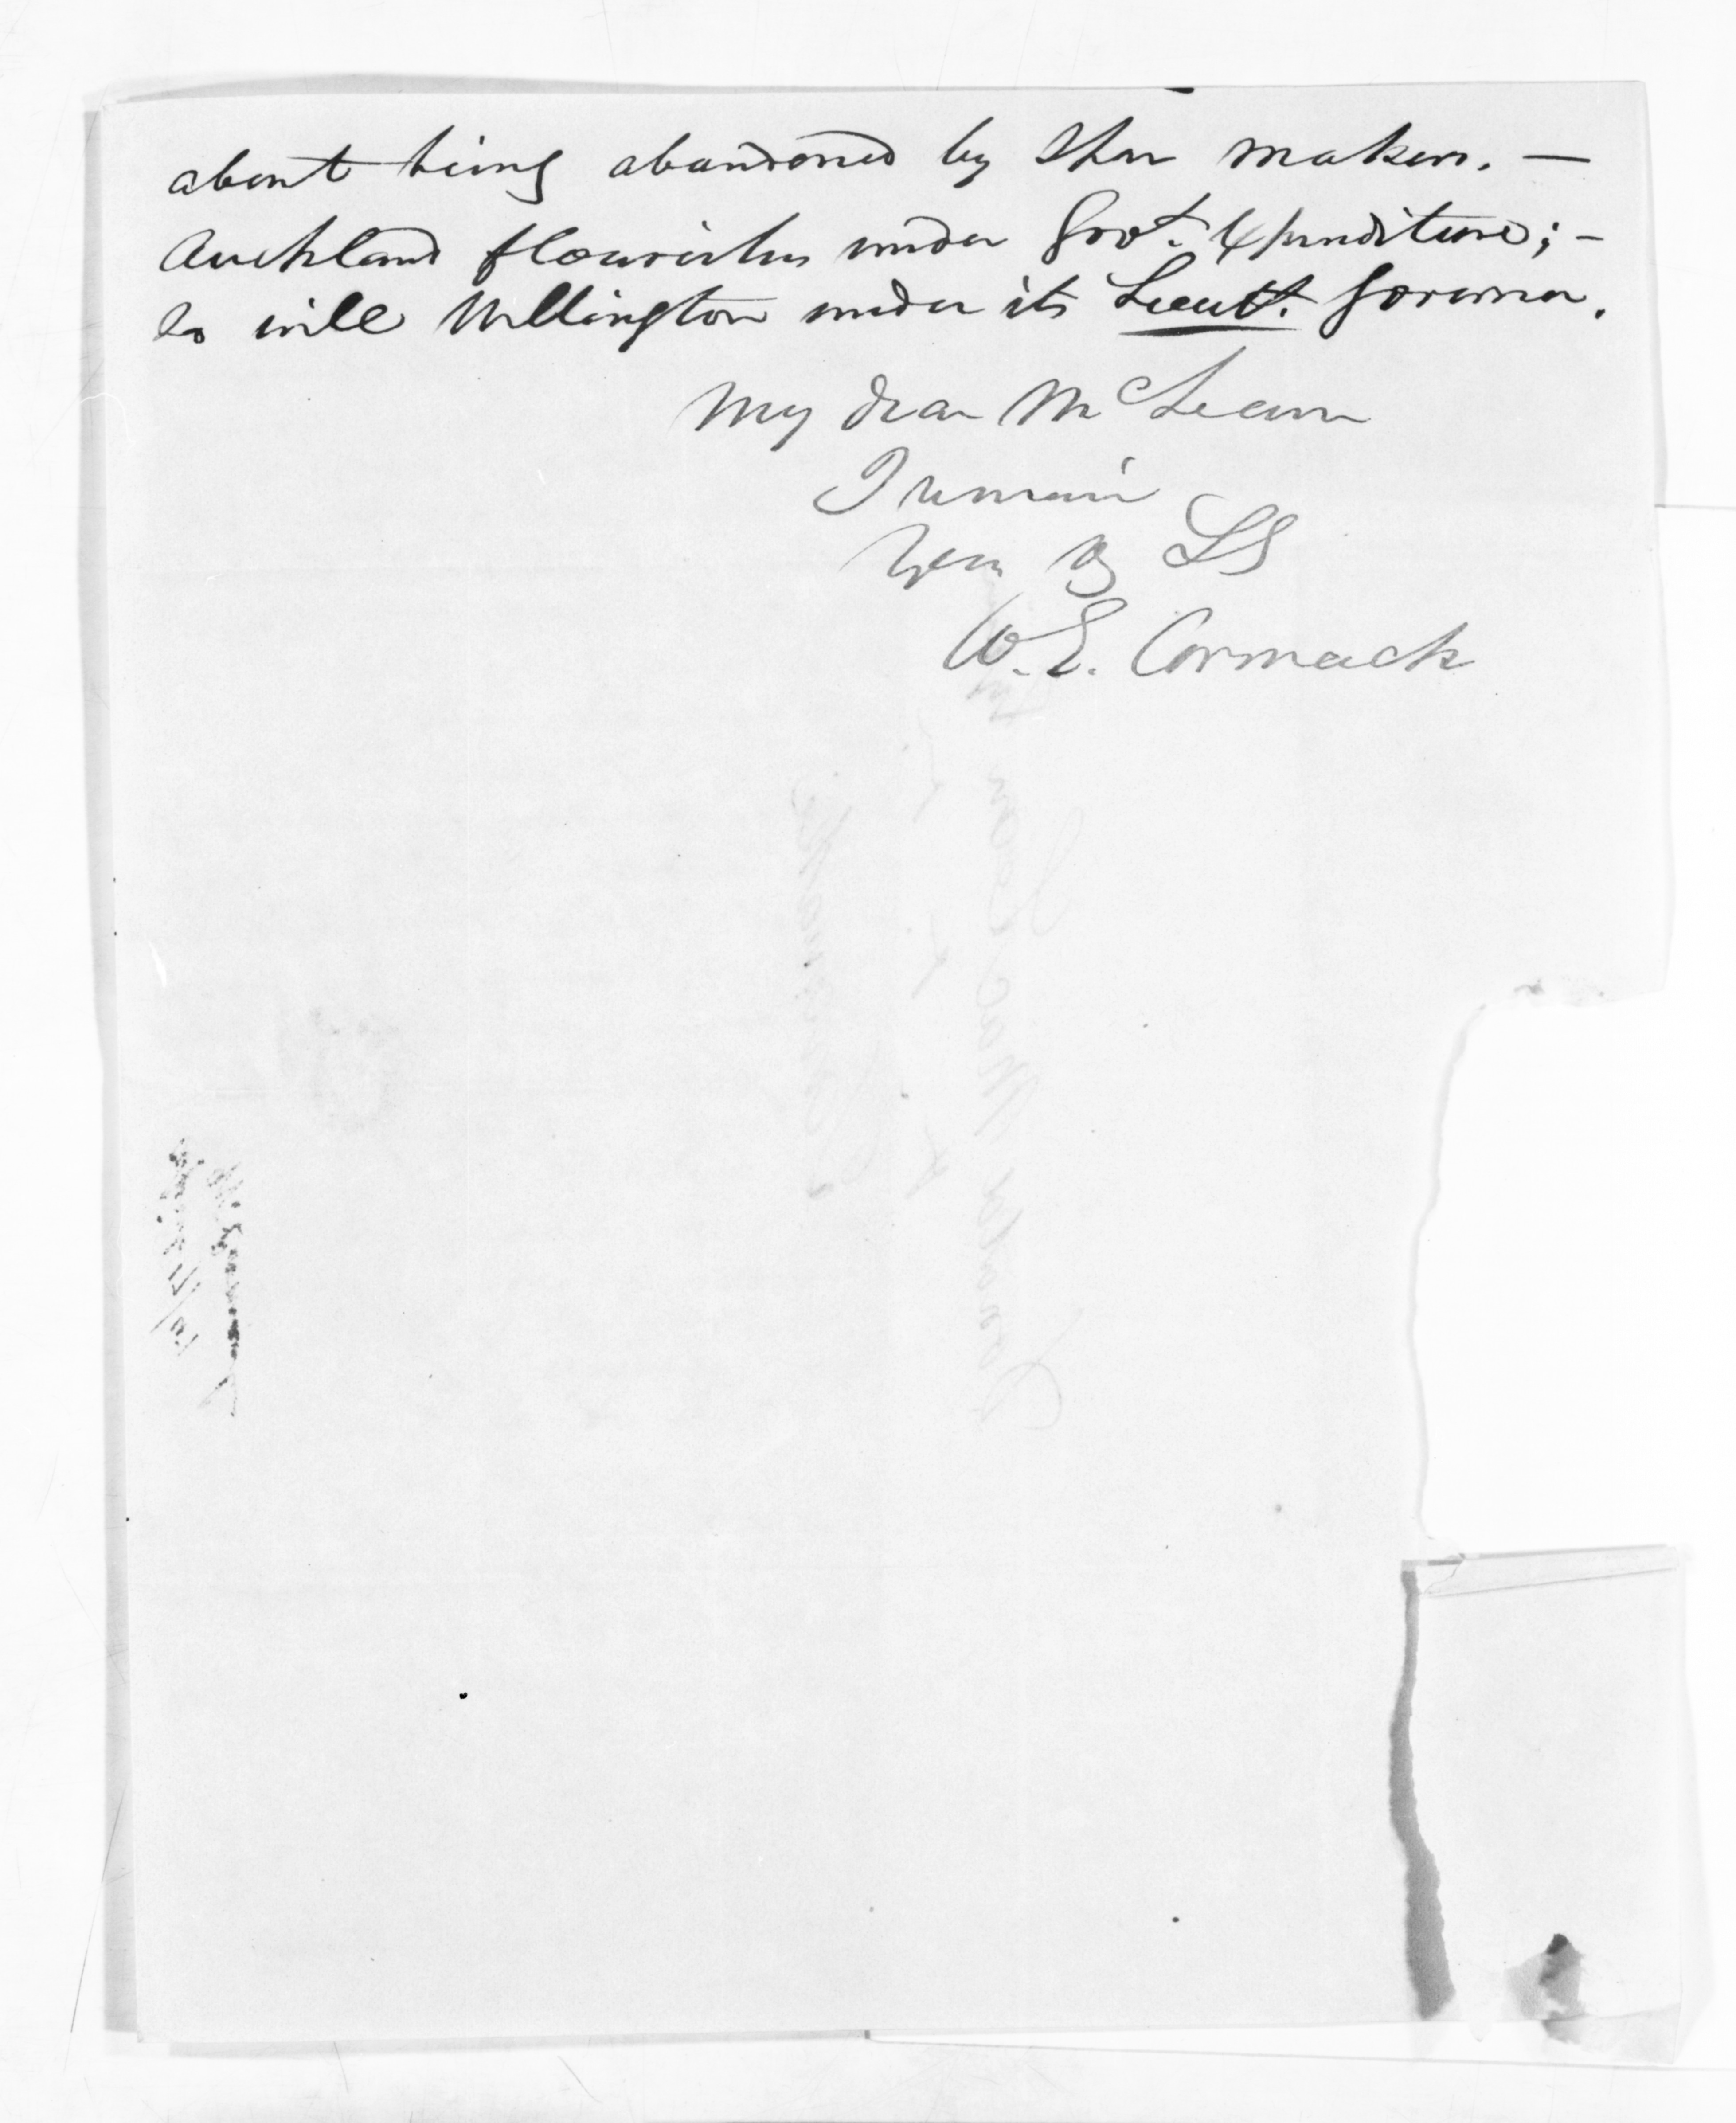 about being abandoned by their makers. —
Auckland flourishes under Govt. Expenditure; –
So will Wellington under its Lieut. Governor.
My dear McLean
I remain
W.E. Cormack